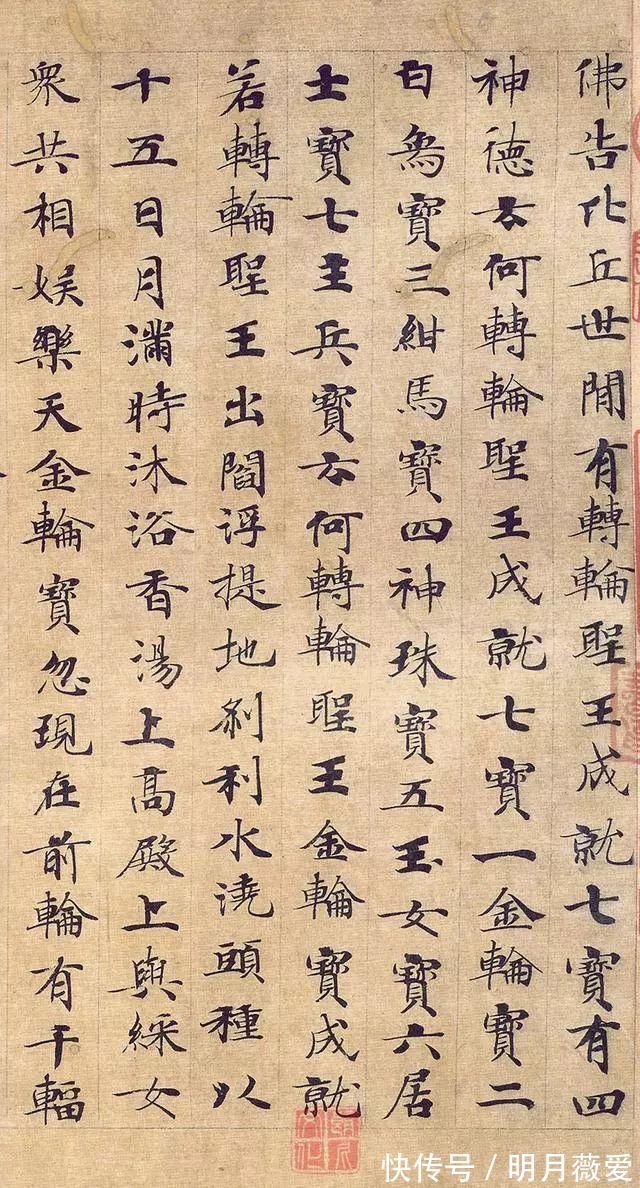 佛告比丘世間有轉輪聖王成就七寶有四
神德云何轉輪聖王成就七寶一金輪寶二
白象寶三紺馬寶四神珠寶五玉女寶六居
士寶七主兵寶云何轉輪聖王金輪寶成就
若轉輪聖王出閻浮提地刹利水澆頭種以
十五日月滿時沐浴香湯上高殿上與綵女
衆共相娛樂天金輪寶忽現在前輪有千輻
快传号／明月薇爱